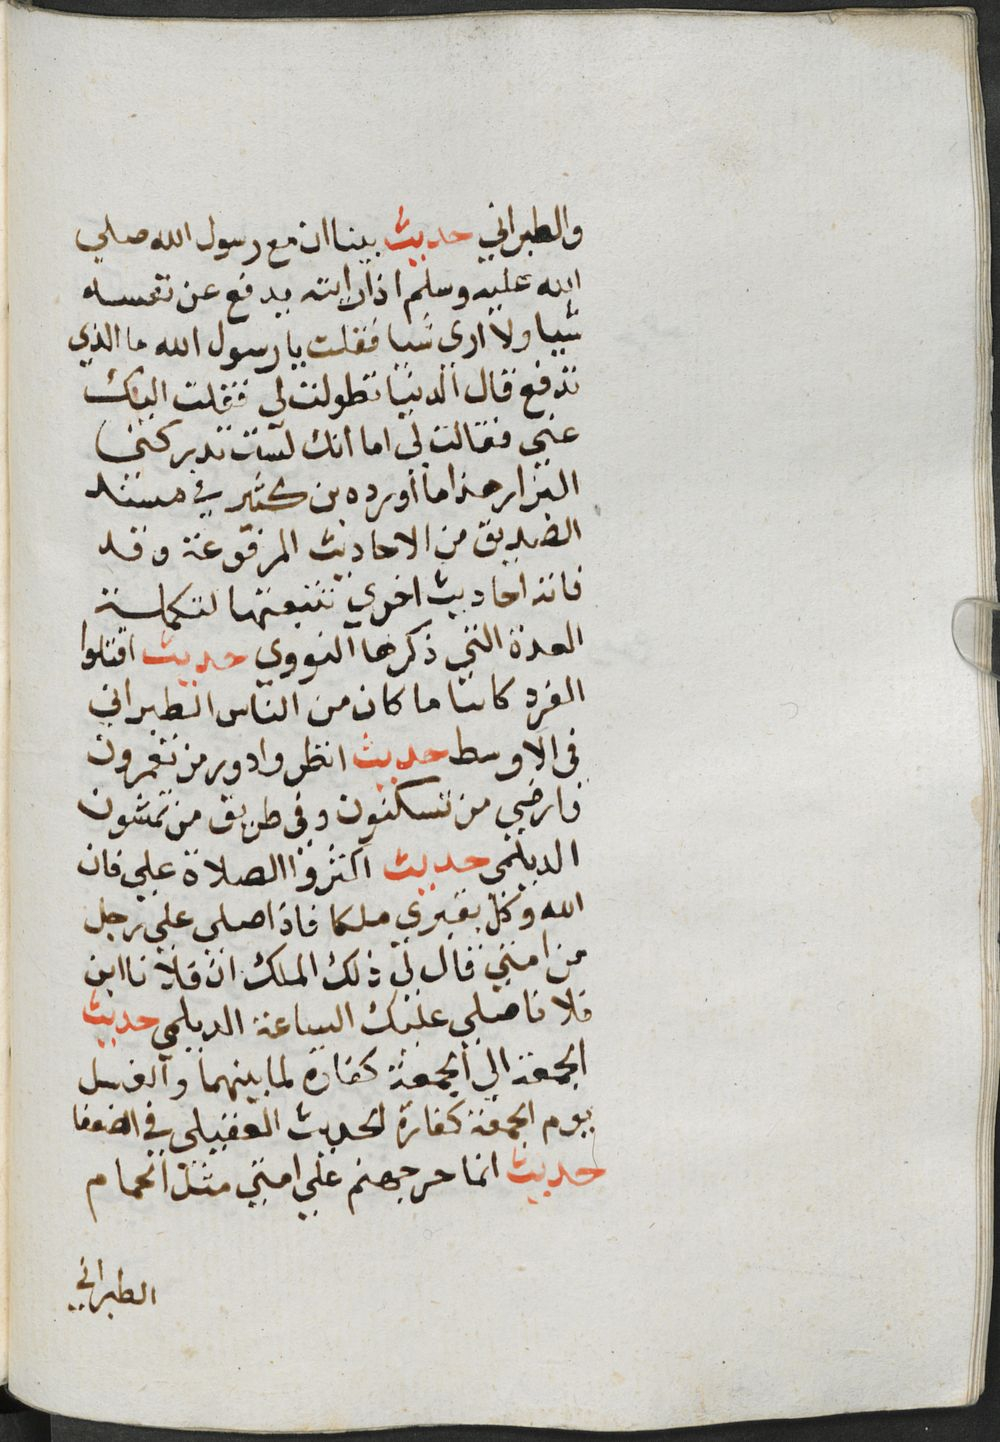 والطبراني حديث بينا ان مع رسول الله صلي
الله عليه وسلم اذ رايته يدفع عن نفسه
شيا ولا اري شيا فقلت يا رسول الله ما الذي
تدفع قال الدنيا تطولت لي فقلت اليك
عني فقالت لي اما انك لست تدركني
البزار هذا ما أورده بن كثير في مسند
الصديق من الاحاديث المرفوعة وقد
فاته احاديث اخري نتتبعتها لتكملة
العدة التي ذكرها النووي حديث اقتلوا
القرد كاينا ما كان من الناس الطبراني
في الاوسط حديث انظروا دور من تعمرون
وارضي من تسكنون وفي طريق من تمشون
الديلمي حديث اكثروا الصلاة علي فان
الله وكل بقبري ملكا فاذا صلي علي رجل
من امتي قال لي ذلك الملك ان فلانا ابن
فلانا صلي عليك الساعة الديلمي حديث
الجمعة الي الجمعة كفارة لما بينهما والغسل
يوم الجمعة كفارة الحديث العقيلي في الضعفا
حديث انما حر جهنم علي امتي مثل الحمام
الطبراني